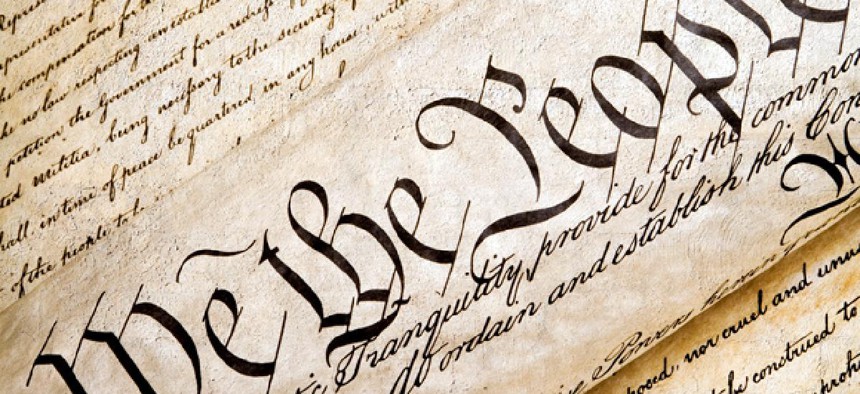 compensation for
no law respecting an establi
petition the Government for a redress of
Militia, being necessary to the security of
hall, in time of peace be quartered in any house, with
of the people to be
We the People
Tranquility, provide for the common
do ordain and establish this Con
nor cruel and unus
be construed to